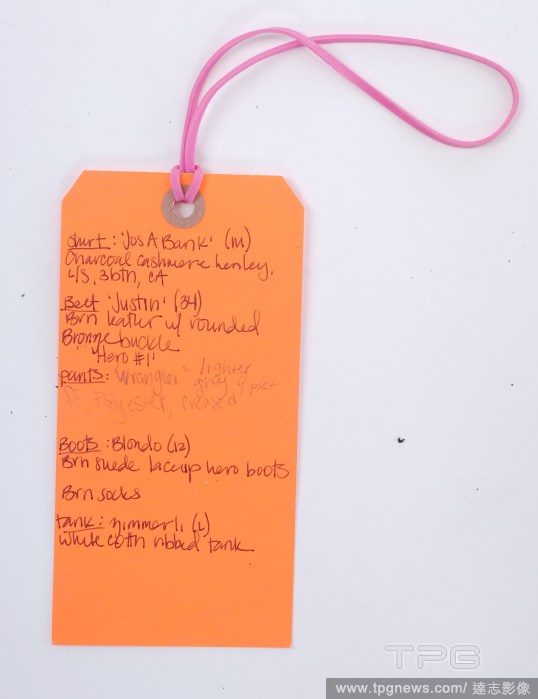 shirt: 'Jos A Bank' (M)
Charcoal cashmere henley,
L/S, 3btn, CA
Belt 'Justin' (34)
Brn leather w/ rounded
Bronze buckle
"Hero #1"
pants: Wrangler - lighter
gray 4 pkt
ft, Polyester, creased
Boots: Blondo (12)
Brn suede laceup hero boots
Brn socks
tank: zimmerli (L)
white cottn ribbed tank
TPG
www.tpgnews.com/ 達志影像